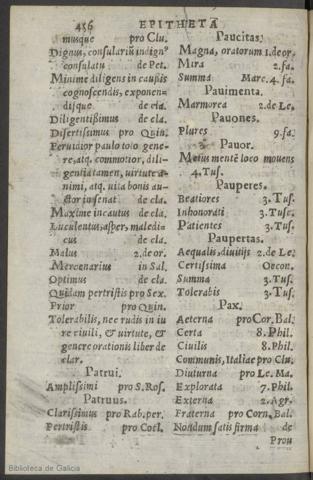 436 EPITHETA
musque pro Clu.
Dignus, consulariũ indignº
consulatu de Pet.
Minime diligens in caußis
cognoscendis, exponen-
disque de cla.
Diligentißimus de cla.
Disertissimus pro Quin.
Feruidior paulo toto gene-
re, atq. commotior, dili-
gentia tamen, uirtute a-
nimi, atq. uita bonis au-
ctor iu senat de cla.
Maxime incautus de cla.
Luculentus, asper, maledi-
cus de cla.
Malus 2.de or.
Mercenarius in Sal.
Optimus de cla.
Quidam pertristis pro Sex.
Prior pro Quin.
Tolerabilis, nec rudis in iu
re ciuili, & uirtute, &
genere orationis liber de
clar.
Patrui.
Amplissimi pro S. Ros.
Patruus.
Clarissimus pro Rab. per.
Pertristis pro Coel.
Paucitas.
Magna, oratorum 1.deor.
Mira 2.fa.
Summa Marc. 4. fa.
Pauimenta.
Marmorea 2.de Le.
Pauones.
Plures 9.fa.
Pauor.
Metus mentẽ loco mouens
4. Tus.
Pauperes.
Beatiores 3. Tus.
Inhonorati 3. Tusc.
Patientes 3. Tus.
Paupertas.
Aequalis, diuitijs 2.de Le.
Certissima Oecon.
Summa 3. Tus.
Tolerabis 3. Tus.
Pax.
Aeterna pro Cor. Bal.
Certa 8. Phil.
Ciuilis 8. Phil.
Communis, Italiae pro Clu.
Diuturna pro Le. Ma.
Explorata 7. Phil.
Externa 2. Agr.
Fraterna pro Corn. Bal.
Nondum satis firma de
Prou
Biblioteca de Galicia